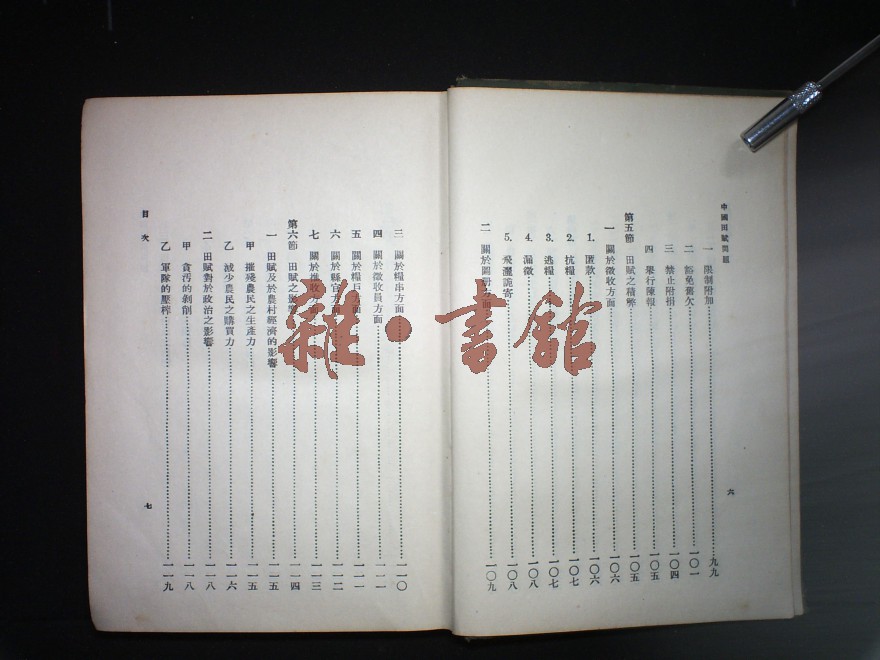 中國田賦問題
一 限制附加……九九
二 豁免舊欠……一〇一
三 禁止附捐……一〇四
四 舉行陳報……一〇五
第五節 田賦之積弊……一〇五
一 關於徵收方面……一〇六
1. 匿款……一〇六
2. 抗糧……一〇七
3. 逃糧……一〇七
4. 漏徵……一〇八
5. 飛灑詭寄……一〇八
二 關於圖冊方面……一〇九
六
三 關於糧串方面……一一〇
四 關於徵收員方面……一一一
五 關於糧戶方面……一一一
六 關於縣官方面……一一二
七 關於推收方面……一一三
第六節 田賦之影響……一一四
一 田賦及於農村經濟的影響……一一五
甲 摧殘農民之生產力……一一五
乙 減少農民之購買力……一一六
二 田賦對於政治之影響……一一八
甲 貪污的剝削……一一八
乙 軍隊的壓榨……一一九
目次
七
雜·書館